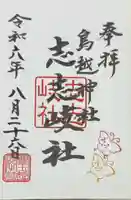 奉拝
鳥越神社
志志岐社
令和六年 八月二十六日